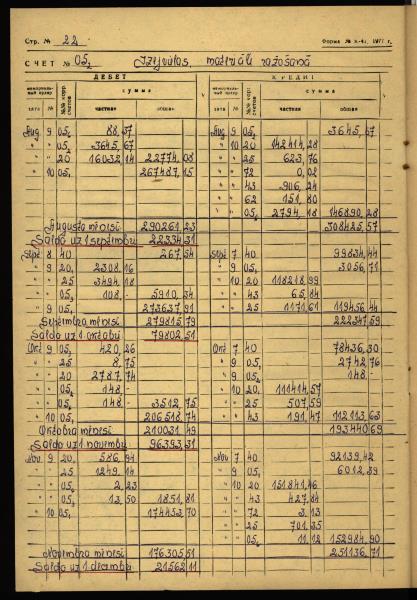 Стр. № 22 Форма № к-4, 1977 г.
СЧЕТ № 05₂ Izejvielas, materiāli ražošanā
ДЕБЕТ КРЕДИТ
мемориальный ордер №№ корр. счетов сумма мемориальный ордер №№ корр. счетов сумма
дата № частная общая дата № частная общая
Aug 9 05, 88,37 Aug 9 05, 3645,67
" " 05, 3645,67 " 10 20 142414,28
" " 20 16032,14 22774,08 " " 25 623,76
" 10 05, 267487,15 " " 72 0,02
" " 43 906,24
" " 62 151,80
" " 05, 2794,18 146890,28
Augusta mēnesī 290261,23 308425,57
Saldo uz 1 septembri 22334,31
Sept 8 40 267,54 Sept 7 40 99834,44
" 9 20, 2308,16 " 9 05, 3056,71
" " 25 3494,18 " 10 20 118218,99
" " 05, 108,- 5910,34 " " 43 65,84
" 9 05, 273637,91 " " 25 1171,61 119456,44
Septembra mēnesī 279815,79 222347,59
Saldo uz 1 oktobri 79802,51
Okt 9 05, 420,26 Okt 7 40 78436,30
" " 25 8,75 " 9 05, 2742,76
" " 20 2787,74 " 9 05, 148,-
" " 05, 148,- " 10 20 111414,57
" " 05, 148,- 3512,75 " " 25 507,59
" 10 05, 206518,74 " " 43 191,47 112113,63
Oktobra mēnesī 210031,49 193440,69
Saldo uz 1 novembri 96393,31
Nov 9 20 586,91 Nov 7 40 92139,42
" " 25 1249,14 " 9 05, 6012,39
" " 05, 2,23 " 10 20 151841,46
" " 05, 13,50 1851,81 " " 43 427,84
" 10 05, 174453,70 " " 72 3,13
" " 25 701,35
" " 05, 11,12 152984,90
Novembra mēnesī 176305,51 251136,71
Saldo uz 1 decembri 21562,11